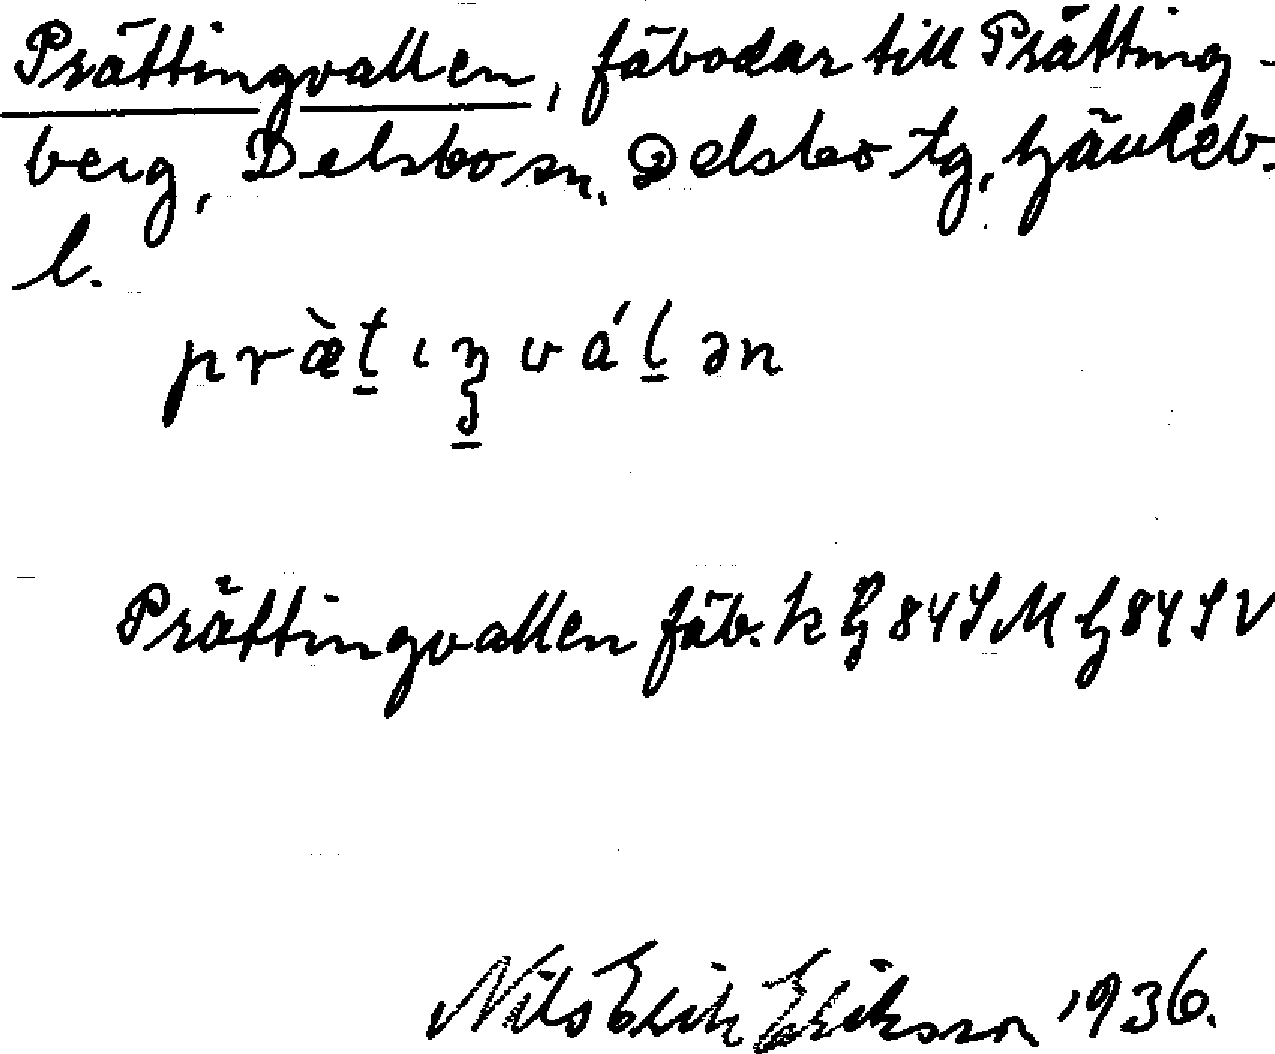 Prättingvallen, fäbodar till Prätting-
berg, Delsbo sn. Delsbo tg, Gävleb.
l.
præ̀t̠ıŋ̠vál̠ən
Prättingvallen fäb. k G 84 S M G 84 S V
Nils Erik Eriksson 1936.